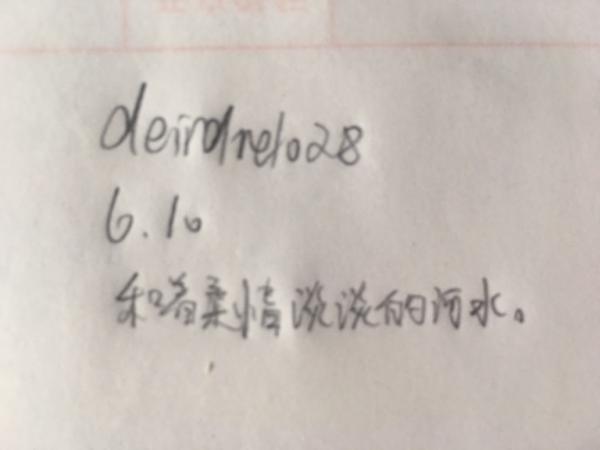 deirdre1028
6.10
和着柔情淡淡的河水。